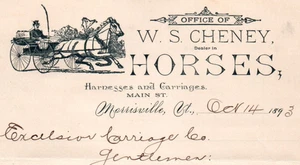 OFFICE OF
W. S. CHENEY,
Dealer in
HORSES,
Harnesses and Carriages.
MAIN ST.
Morrisville, Vt., Oct 14 1893
Excelsior Carriage Co.
Gentlemen: